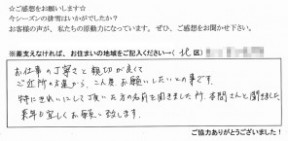 ☆ご感想をお願いします☆
今シーズンの排雪はいかがでしたか？
お客様の声が、私たちの原動力になっています。ぜひ、ご感想をお聞かせ下さい。
※差支えなければ、お住まいの地域をご記入ください→( 北区
お仕事の丁寧さと親切が良くて
ご近所の方達から、この度お願いしたいとの事です。
特にきれいにして頂いた方の名前を聞きました所、本間さんと聞きました。
来年も宜しくお願い致します。
ご協力ありがとうございました！